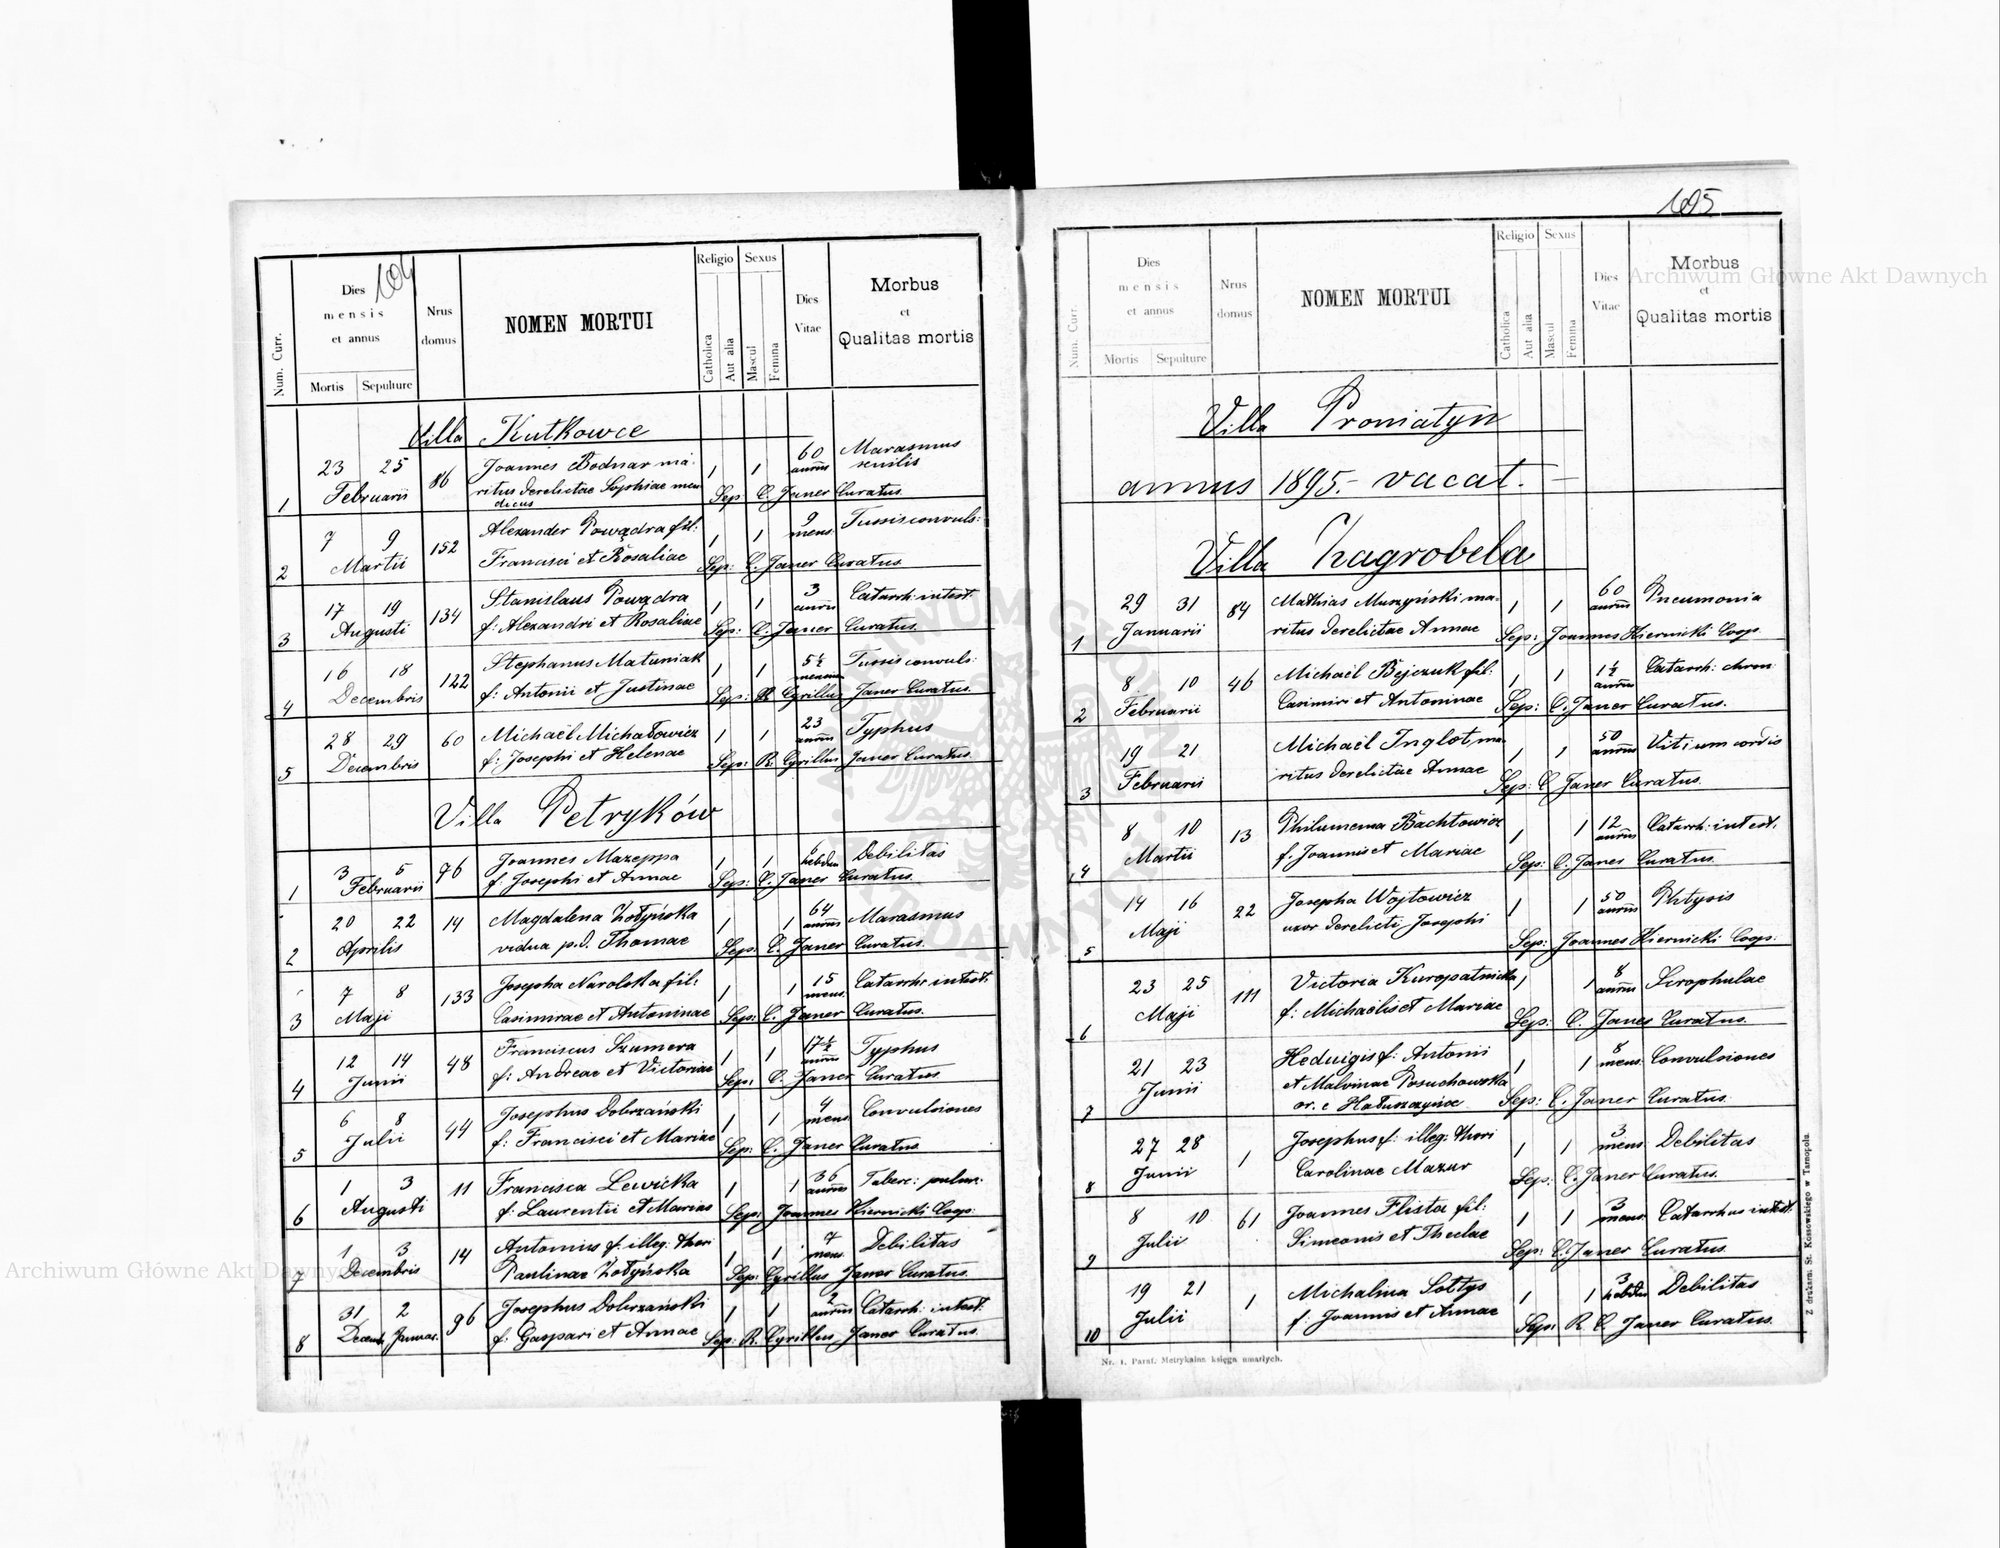 695
604
Dies
mensis
et annus
Mortis Sepulture
Num. Curr.
Nrus
domus
NOMEN MORTUI
Religio Sexus
Catholica
Aut alia
Mascul
Femina
Dies
Vitae
Morbus
et
Qualitas mortis
Villa Kutkowce
1 23 25 Februarii 86 Joannes Bodnar ma- 1 1 60 annus Marasmus senilis
ritus derelictae Sophiae men
dicus Sep. C. Janer Curatus.
2 7 9 Martii 152 Alexander Powądra fil: 1 1 9 mens. Tussis convuls:
Francisci et Rosaliae Sep: C. Janer Curatus.
3 17 19 Augusti 134 Stanislaus Powądra 1 1 3 annus Catarrh: intest.
f: Alexandri et Rosaliae Sep: C. Janer Curatus.
4 16 18 Decembris 122 Stephanus Matuniak 1 1 5½ mensium Tussis convuls:
f: Antonii et Justinae Sep: R. Cyrillus Janer Curatus.
5 28 29 Decembris 60 Michaël Michałowicz 1 1 23 annus Typhus
f: Josephi et Helenae Sep: R. Cyrillus Janer Curatus.
Villa Petryków
1 3 5 Februarii 76 Joannes Mazeppa 1 1 hebdom Debilitas
f: Josephi et Annae Sep: C. Janer Curatus.
2 20 22 Aprilis 14 Magdalena Żołyńska 1 1 64 annus Marasmus
vidua p.d. Thomae Sep: C. Janer Curatus.
3 7 8 Maji 133 Josepha Narolska fil: 1 1 15 mens. Catarrh: intest.
Casimirae et Antoninae Sep: C. Janer Curatus.
4 12 14 Junii 48 Franciscus Szumera 1 1 17½ annus Typhus
f: Andreae et Victoriae Sep: C. Janer Curatus.
5 6 8 Julii 44 Josephus Dobrzański 1 1 4 mens. Convulsiones
f: Francisci et Mariae Sep: C. Janer Curatus
6 1 3 Augusti 11 Francisca Lewicka 1 1 36 annus Taberc: pulm:
f: Laurentii et Mariae Sep: Joannes Kiernicki Coop.
7 1 3 Decembris 14 Antonius f. illeg: thori 1 1 7 mens. Debilitas
Paulinae Żołyńska Sep: Cyrillus Janer Curatus.
8 31 2 Decemb. Januar. 96 Josephus Dobrzański 1 1 2 annus Catarrh: intest:
f: Gaspari et Annae Sep: R. Cyrillus Janer Curatus.
Dies
mensis
et annus
Mortis Sepulture
Num. Curr.
Nrus
domus
NOMEN MORTUI
Religio Sexus
Catholica
Aut alia
Mascul
Femina
Dies
Vitae
Morbus
et
Qualitas mortis
Villa Proniatyn
annus 1895.- vacat. -
Villa Zagrobela
1 29 31 Januarii 84 Mathias Muszyński ma- 1 1 60 annus Pneumonia
ritus derelictae Annae Sep: Joannes Kiernicki Coop.
2 8 10 Februarii 46 Michaël Bejczuk fil: 1 1 1½ annus Catarrh: chron:
Casimiri et Antoninae Sep: C. Janer Curatus.
3 19 21 Februarii Michaël Inglot ma- 1 1 50 annus Vitium cordis
ritus derelictae Annae Sep: C. Janer Curatus.
4 8 10 Martii 13 Philumena Bachtowicz 1 1 12 annus Catarrh: intest.
f. Joannis et Mariae Sep: C. Janer Curatus.
5 14 16 Maji 22 Josepha Wojtowicz 1 1 50 annus Phtysis
uxor derelicti Josephi Sep: Joannes Kiernicki Coop:
6 23 25 Maji 111 Victoria Kuropatnicka 1 1 8 annus Scrophulae
f: Michaëlis et Mariae Sep: C. Janer Curatus.
7 21 23 Junii Heduigis f: Antonii 1 1 8 mens. Convulsiones
et Malvinae Posuchowska
or. e Hałuszczyńce Sep: C. Janer Curatus.
8 27 28 Junii 1 Josephus f: illeg: thori 1 1 3 mens. Debilitas
Carolinae Mazur Sep: C. Janer Curatus.
9 8 10 Julii 61 Joannes Flista fil: 1 1 3 mens. Catarrhus intest.
Simeonis et Theclae Sep: C. Janer Curatus.
10 19 21 Julii 1 Michalina Sołtys 1 1 3 hebdom Debilitas
f: Joannis et Annae Sep: R. C. Janer Curatus.
Nr. 1. Paraf. Metrykalne księga umarłych.
Z drukarni St. Kossowskiego w Tarnopolu.
Archiwum Główne Akt Dawnych
Archiwum Główne Akt Dawnych